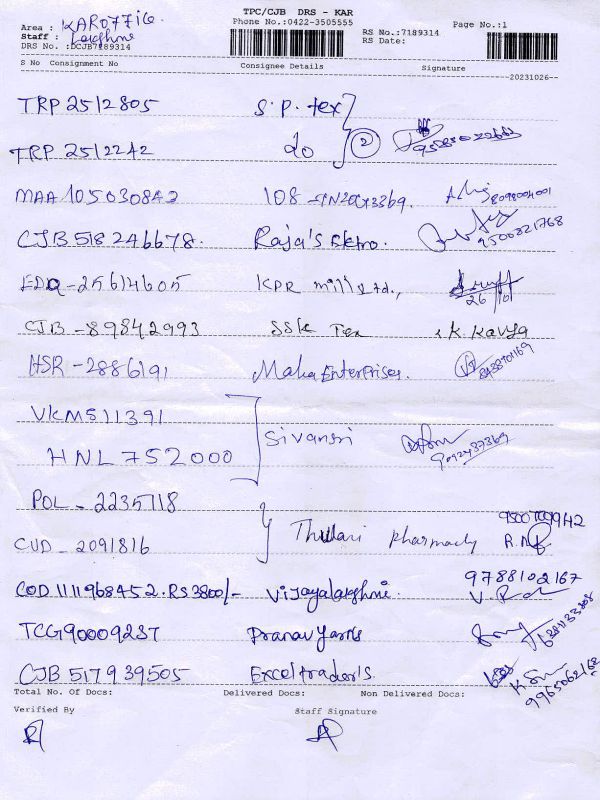 TPC/CJB DRS - KAR
Area : KAROFFIC Phone No.:0422-3505555 Page No.:1
Staff : RS No.:7189314
DRS No. :DCJB7189314 RS Date:
S No Consignment No Consignee Details Signature
20231026
TRP 2512805 S.P. tex
TRP 2512242 do 2
MAA 105030842 108 - 8098004001
CJB 518246678. Raja's Ektro. 9500821768
EDQ - 25614605 KPR mill Ltd.,
26/10
CJB - 89842993 SSK Tex K. Kavya
HSR - 2886191 Maha Enterprises.
VKM511391
Sivansri
HNL 752000
POL - 2235718
Thulasi pharmacy
CUD - 2091816
COD 1111968452. RS 3800/- Vijayalakshmi. 9788102167
TCG90009237 Pranav Yarns
CJB 517939505 Excel trader's.
Total No. Of Docs: Delivered Docs: Non Delivered Docs:
Verified By Staff Signature